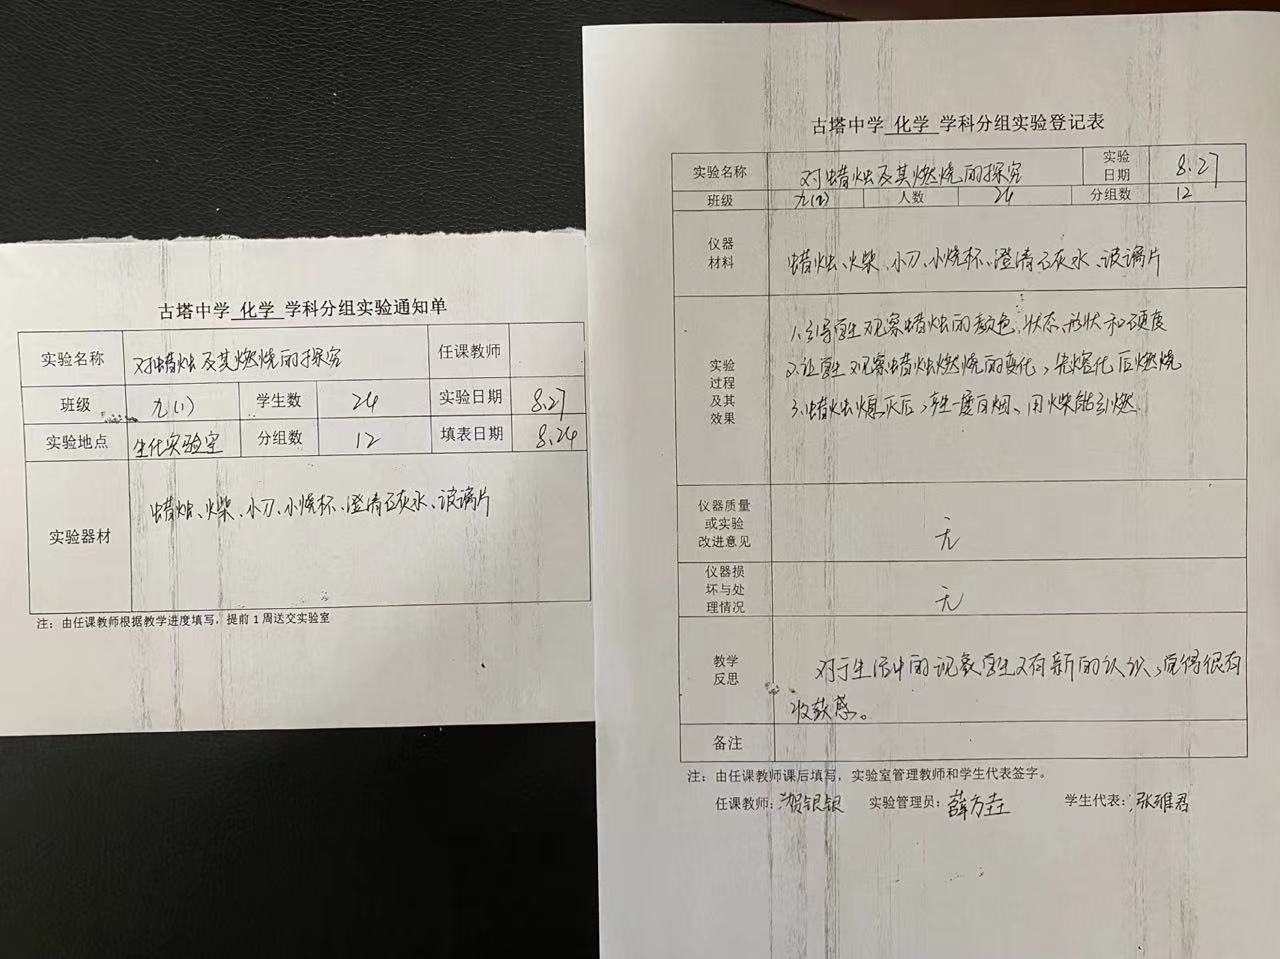 古塔中学 化学 学科分组实验通知单
实验名称 对蜡烛及其燃烧的探究 任课教师
班级 九(1) 学生数 24 实验日期 8.27
实验地点 生化实验室 分组数 12 填表日期 8.24
实验器材 蜡烛、火柴、小刀、小烧杯、澄清石灰水、玻璃片
注：由任课教师根据教学进度填写，提前1周送交实验室
古塔中学 化学 学科分组实验登记表
实验名称 对蜡烛及其燃烧的探究 实验日期 8.27
班级 人数 24 分组数 12
仪器材料 蜡烛、火柴、小刀、小烧杯、澄清石灰水、玻璃片
实验过程及其效果
1.引导学生观察蜡烛的颜色、状态、形状和硬度
2.让学生观察蜡烛燃烧的变化，先熔化后燃烧
3.蜡烛熄灭后，产生一度白烟、用火柴能引燃.
仪器质量或实验改进意见 无
仪器损坏与处理情况 无
教学反思 对于生活中的现象学生又有新的认识，觉得很有
收获感。
备注
注：由任课教师课后填写，实验室管理教师和学生代表签字。
任课教师：贺银银 实验管理员：薛方 学生代表：张雅君